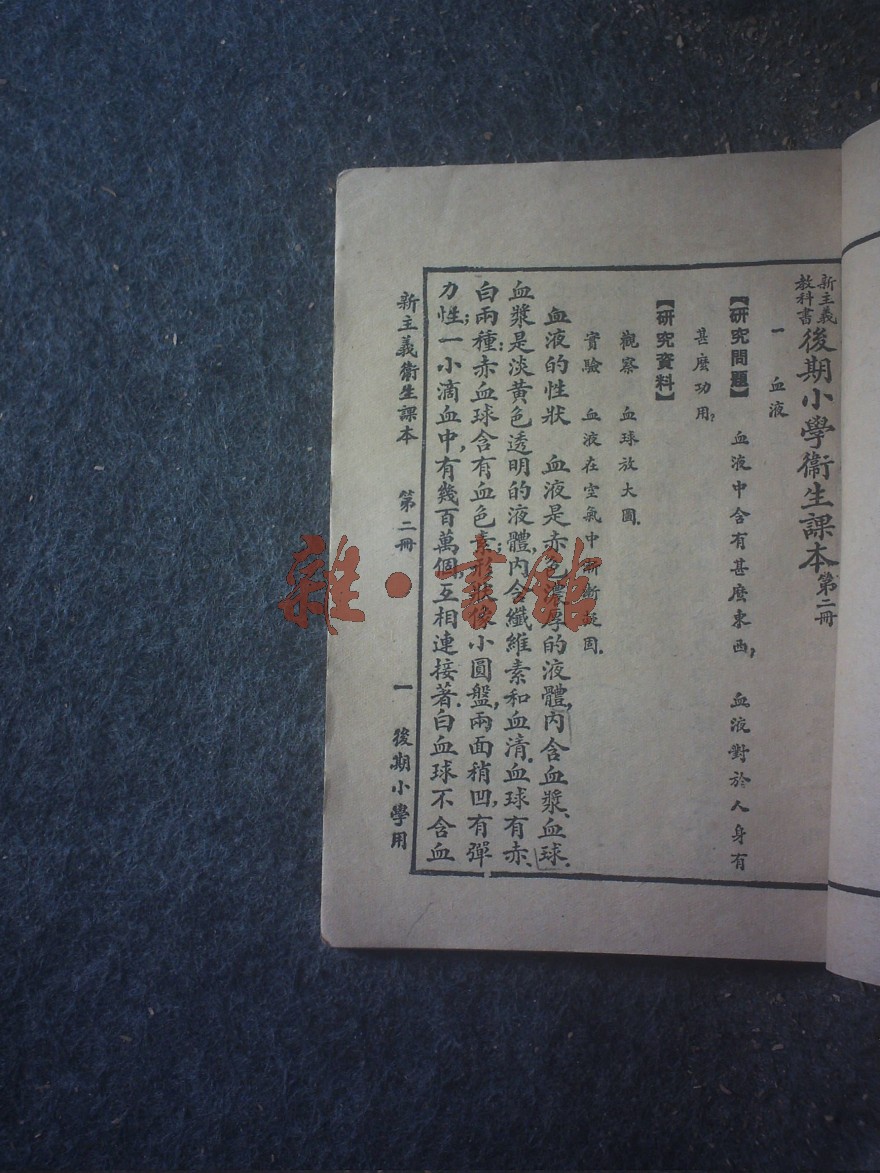 新主義
教科書
後期小學衞生課本第二冊
一 血液
【研究問題】 血液中含有甚麼東西, 血液對於人身有
甚麼功用?
【研究資料】
觀察 血球放大圖.
實驗 血液在空氣中漸漸凝固.
血液的性狀 血液是赤色濃厚的液體,內含血漿、血球.
血漿是淡黃色透明的液體,內含纖維素和血清.血球有赤、
白兩種:赤血球含有血色素;形狀像小圓盤,兩面稍凹,有彈
力性;一小滴血中,有幾百萬個,互相連接著.白血球不含血
新主義衞生課本 第二冊 一 後期小學用
雜·書館